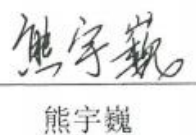 熊宇巍
熊宇巍